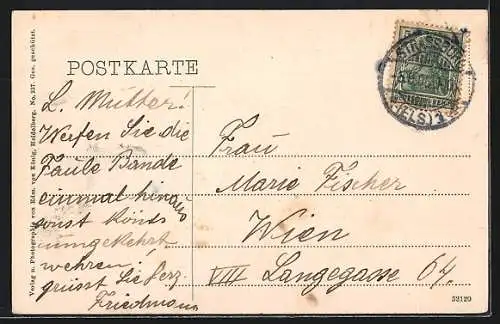 Verlag u. Photographie von Edm. von König, Heidelberg. No. 237. Ges. geschützt.
POSTKARTE
L. Mutter!
Werfen Sie die
Faule Bande
einmal hinaus
sonst könnt
umgekehrt
wehren,
grüsst Sie herz.
Friedmann
Frau
Marie Fischer
Wien
VIII Langegasse 64.
STRASSBURG
(ELS.) 1
52120